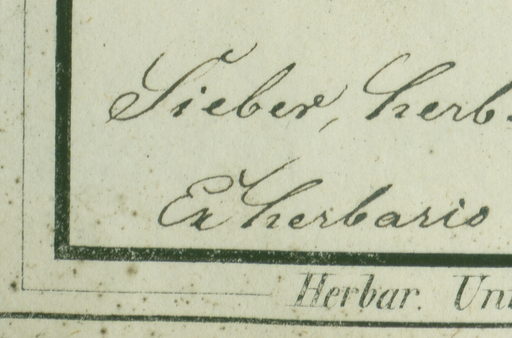 Sieber, herb.
Ex herbario
Herbar. Uni